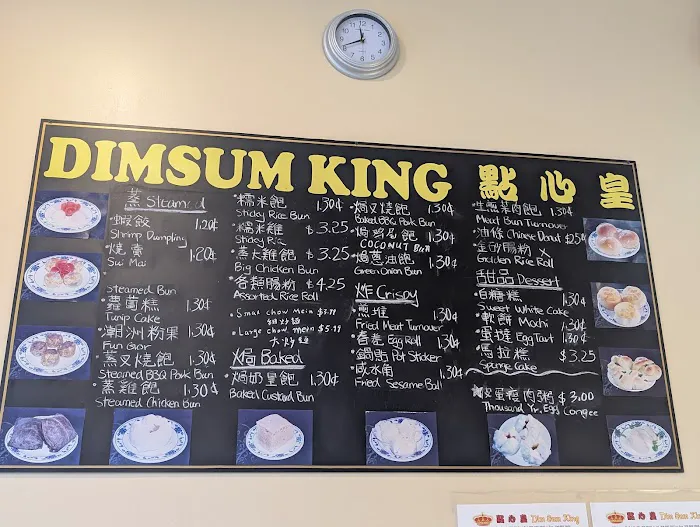 DIMSUM KING 點心皇
蒸 Steamed
蝦餃 1.20¢
Shrimp Dumpling
燒賣 1.20¢
Sui Mai
Steamed Bun
蘿蔔糕 1.30¢
Turnip Cake
潮洲粉果 1.30¢
Fun Gor
蒸叉燒飽 1.30¢
Steamed BBQ Pork Bun
蒸雞飽 1.30¢
Steamed Chicken Bun
糯米飽 1.30¢
Sticky Rice Bun
糯米雞 $3.25
Sticky Rice
蒸大雞飽 $3.25
Big Chicken Bun
各類腸粉 $4.25
Assorted Rice Roll
Small chow mein
細炒麵
Large chow mein
大炒麵
焗 Baked
焗奶皇飽 1.30¢
Baked Custard Bun
焗叉燒飽 1.30¢
Baked BBQ Pork Bun
COCONUT BUN
焗蔥油飽 1.30¢
Green Onion Bun
炸 Crispy
1.30¢
Fried Meat Turnover
春卷 Egg Roll 1.30¢
鍋貼 Pot Sticker
咸水角 1.30¢
Fried Sesame Ball
生煎菜肉飽 1.30¢
Meat Bun Turnover
油條 Chinese Donut
Golden Rice Roll
甜品 Dessert
白糖糕 1.30¢
Sweet White Cake
軟餅 Mochi 1.30¢
蛋撻 Egg Tart 1.30¢
馬拉糕 $3.25
Sponge Cake
皮蛋瘦肉粥 $3.00
Thousand Yr. Egg Congee
點心皇 Dim Sum King
點心皇 Dim Sum King